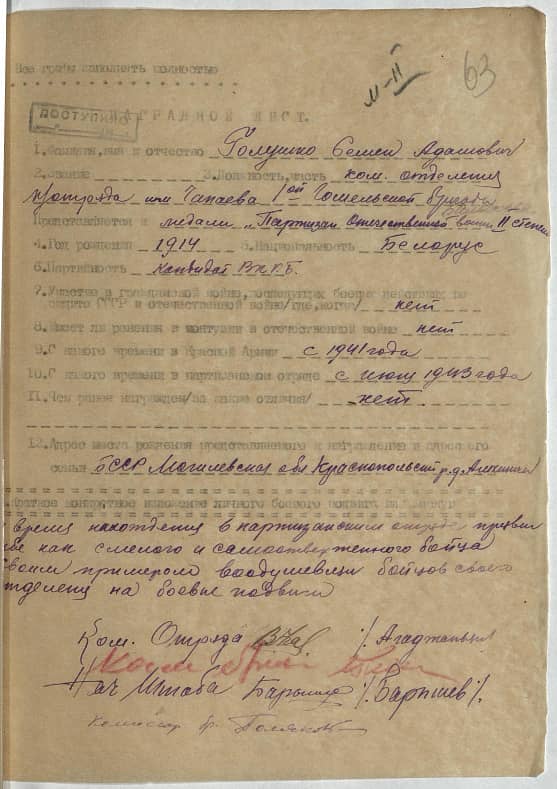 63
м-II
Все графы заполнять полностью
ПОСТУПИЛО
НАГРАДНОЙ ЛИСТ.
1. Фамилия, имя и отчество Голушко Семен Адамович
2. Звание 3. Должность, часть ком. отделения
п/отряда им Чапаева 1ой Гомельской бригады
Представляется к медали „Партизан Отечественной войны II степени
4. Год рождения 1914 5. Национальность Белорус
6. Партийность кандидат ВКПБ.
7. Участие в гражданской войне, последующих боевых действиях по
защите СССР и отечественной войне/где, когда/ нет
8. Имеет ли ранения и контузии в отечественной войне нет
9. С какого времени в Красной Армии с 1941 года
10. С какого времени в партизанском отряде с июля 1943 года
11. Чем ранее награжден/за какие отличия/ нет.
12. Адрес места рождения представляемого к награждению и адрес его
семьи БССР Могилевская обл Краснопольский р.
Краткое конкретное изложение личного боевого подвига или заслуг
время нахождения в партизанском отряде проявил
себя как смелого и самоотверженного бойца
Своим примером воодушевлял бойцов своего
отделения на боевые подвиги
Ком. Отряда /Агаджанян
Нач Штаба /Барышев/.
комиссар бр.